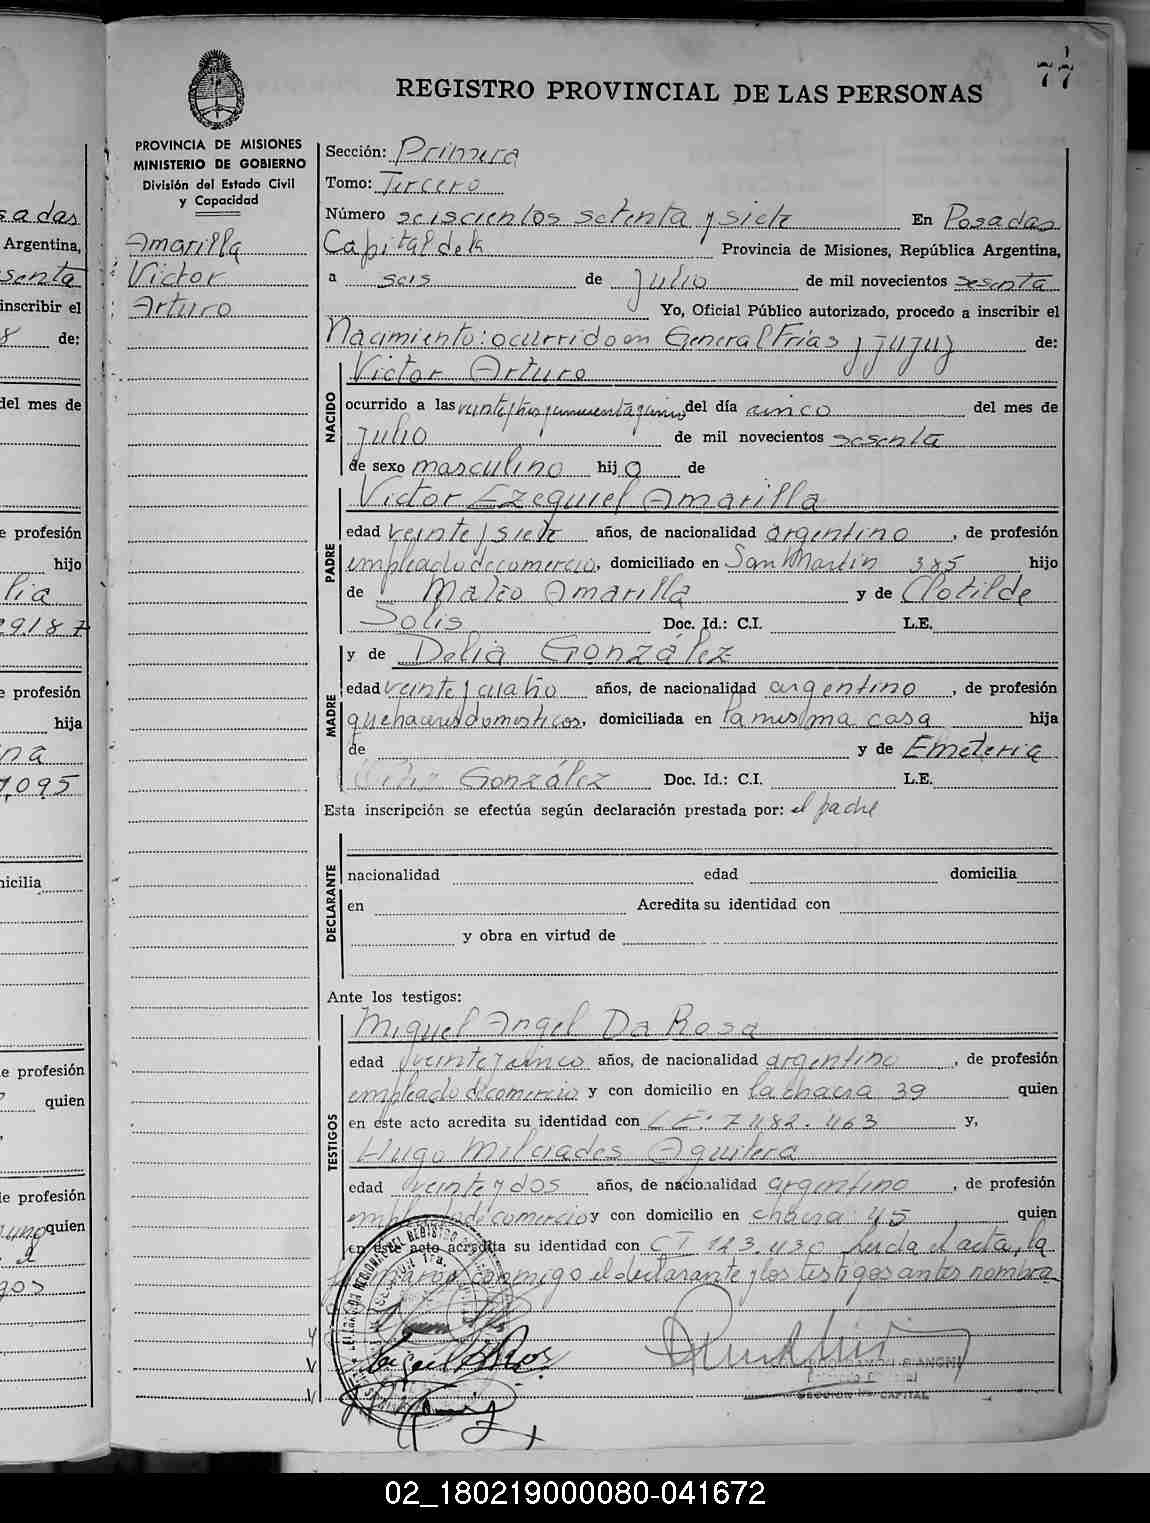 77
REGISTRO PROVINCIAL DE LAS PERSONAS
PROVINCIA DE MISIONES
MINISTERIO DE GOBIERNO
División del Estado Civil
y Capacidad
Amarilla
Victor
Arturo
sadas
Argentina,
senta
inscribir el
8 de:
del mes de
e profesión
hijo
lia
29187
e profesión
hija
na
1.095
icilia
e profesión
quien
e profesión
quien
gos
Sección: Primera
Tomo: Tercero
Número seiscientos setenta y siete En Posadas
Capital de la Provincia de Misiones, República Argentina,
a seis de Julio de mil novecientos sesenta
Yo, Oficial Público autorizado, procedo a inscribir el
Nacimiento: ocurrido en General Frías y Jujuy de:
NACIDO
Victor Arturo
ocurrido a las del día cinco del mes de
Julio de mil novecientos sesenta
de sexo masculino hijo de
PADRE
Victor Ezequiel Amarilla
edad veinte y siete años, de nacionalidad argentino, de profesión
empleado de comercio, domiciliado en San Martin 385 hijo
de Mateo Amarilla y de Clotilde
Solis Doc. Id.: C.I. L.E.
MADRE
y de Delia González
edad veinte y cuatro años, de nacionalidad argentino, de profesión
quehaceres domesticos, domiciliada en la misma casa hija
de y de Emeteria
González Doc. Id.: C.I. L.E.
Esta inscripción se efectúa según declaración prestada por: el padre
DECLARANTE
nacionalidad edad domicilia
en Acredita su identidad con
y obra en virtud de
Ante los testigos:
TESTIGOS
Miguel Angel Da Rosa
edad veinte y cinco años, de nacionalidad argentino, de profesión
empleado de comercio y con domicilio en la chacra 39 quien
en este acto acredita su identidad con L E. 7.482.463 y,
Hugo Milciades Aguilera
edad veinte y dos años, de nacionalidad argentino, de profesión
empleado de comercio y con domicilio en chacra 45 quien
en este acto acredita su identidad con C I 123.430 Leida el acta, la
firman conmigo el declarante y los testigos antes nombra
SECCION 1ra. CAPITAL
02_180219000080-041672